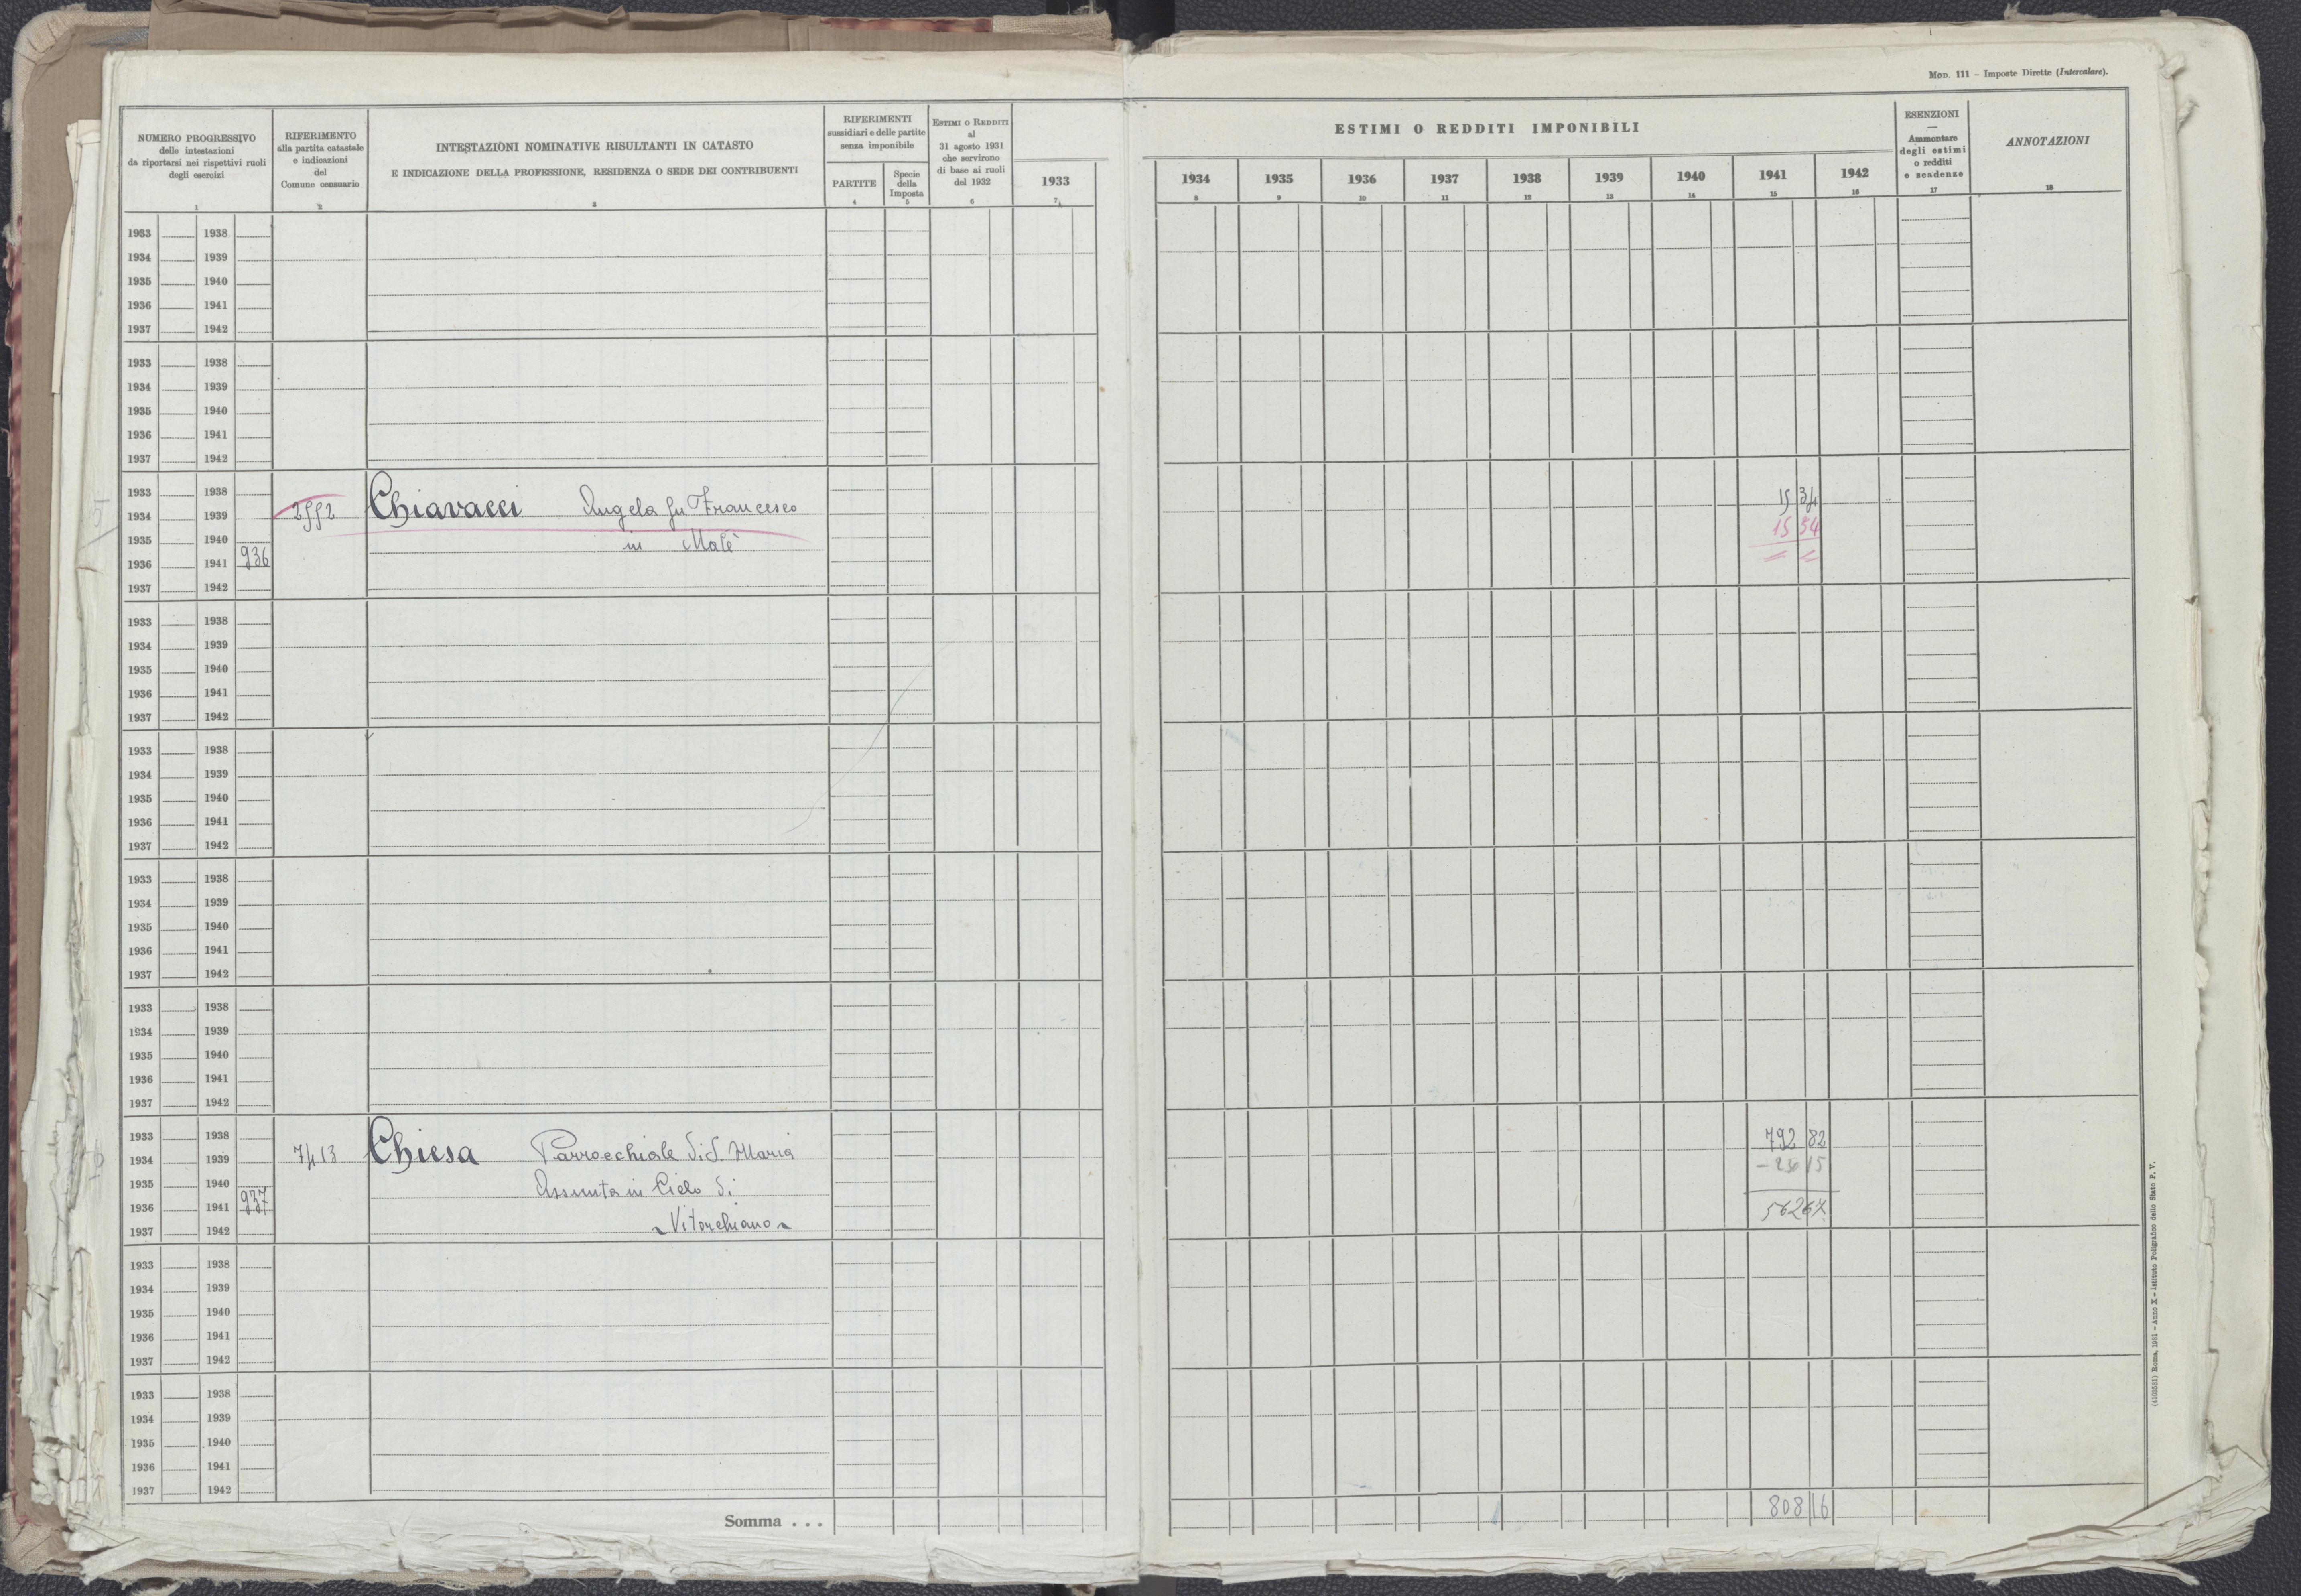 Mod. 111 - Imposte Dirette (Intercalare).
NUMERO PROGRESSIVO
delle intestazioni
da riportarsi nei rispettivi ruoli
degli esercizi
1
RIFERIMENTO
alla partita catastale
e indicazioni
del
Comune censuario
2
INTESTAZIONI NOMINATIVE RISULTANTI IN CATASTO
E INDICAZIONE DELLA PROFESSIONE, RESIDENZA O SEDE DEI CONTRIBUENTI
3
RIFERIMENTI
sussidiari e delle partite
senza imponibile
PARTITE
4
Specie
della
Imposta
5
ESTIMI O REDDITI
al
31 agosto 1931
che servirono
di base ai ruoli
del 1932
6
1933
7
ESTIMI O REDDITI IMPONIBILI
1934 1935 1936 1937 1938 1939 1940 1941 1942
8 9 10 11 12 13 14 15 16
ESENZIONI
—
Ammontare
degli estimi
o redditi
e scadenze
17
ANNOTAZIONI
18
1933 1938
1934 1939
1935 1940
1936 1941
1937 1942
1933 1938
1934 1939
1935 1940
1936 1941
1937 1942
1933 1938
1934 1939 Chiavacci Angela fu Francesco 15 34
1935 1940 in Malè 15 54
1936 1941 936
1937 1942
1933 1938
1934 1939
1935 1940
1936 1941
1937 1942
1933 1938
1934 1939
1935 1940
1936 1941
1937 1942
1933 1938
1934 1939
1935 1940
1936 1941
1937 1942
1933 1938
1934 1939
1935 1940
1936 1941
1937 1942
1933 1938 792 82
1934 1939 7413 Chiesa Parrocchiale di S. Maria
1935 1940 Assunta in Cielo di
1936 1941 937
1937 1942 Vitorchiano
1933 1938
1934 1939
1935 1940
1936 1941
1937 1942
1933 1938
1934 1939
1935 1940
1936 1941
1937 1942
Somma . . . 808 16
(4103581) Roma, 1931 - Anno X - Istituto Poligrafico dello Stato P. V.